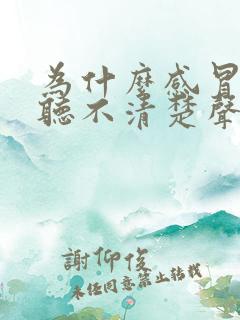 為什麼感冒
聽不清楚聲
謝仰俊
未經同意禁止轉載